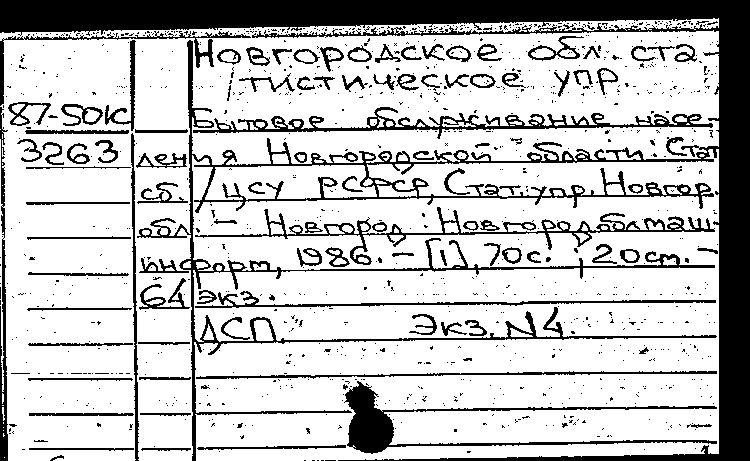 Новгородское обл. ста-
тистическое упр.
87-50к Бытовое обслуживание насе-
3263 ления Новгородской области: Стат.
сб. / ЦСУ РСФСР, Стат. упр. Новгор.
обл. – Новгород : Новгородоблмаш-
информ, 1986. – [1], 70 с. ; 20 см. –
64 экз.
ДСП. Экз. N4.